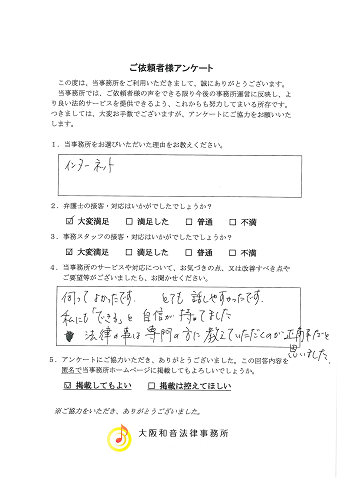 ご依頼者様アンケート
この度は、当事務所をご利用いただきまして、誠にありがとうございます。
当事務所では、ご依頼者様の声をできる限り今後の事務所運営に反映し、よ
り良い法的サービスを提供できるよう、これからも努力してまいる所存です。
つきましては、大変お手数でございますが、アンケートにご協力をお願いいた
します。
1．当事務所をお選びいただいた理由をお教えください。
インターネット
2．弁護士の接客・対応はいかがでしたでしょうか？
☑ 大変満足 □ 満足した □ 普通 □ 不満
3．事務スタッフの接客・対応はいかがでしたでしょうか？
☑ 大変満足 □ 満足した □ 普通 □ 不満
4．当事務所のサービスや対応について、お気づきの点、又は改善すべき点や
ご要望等がございましたら、お聞かせください。
伺ってよかったです。とても話しやすかったです。
私にも「できる」と自信が持てました。
法律の事は専門の方に教えていただくのが正解だと
思いました。
5．アンケートにご協力いただき、ありがとうございました。この回答内容を
匿名で当事務所ホームページに掲載してもよろしいでしょうか。
☑ 掲載してもよい □ 掲載は控えてほしい
※ご協力をいただき、ありがとうございました。
大阪和音法律事務所